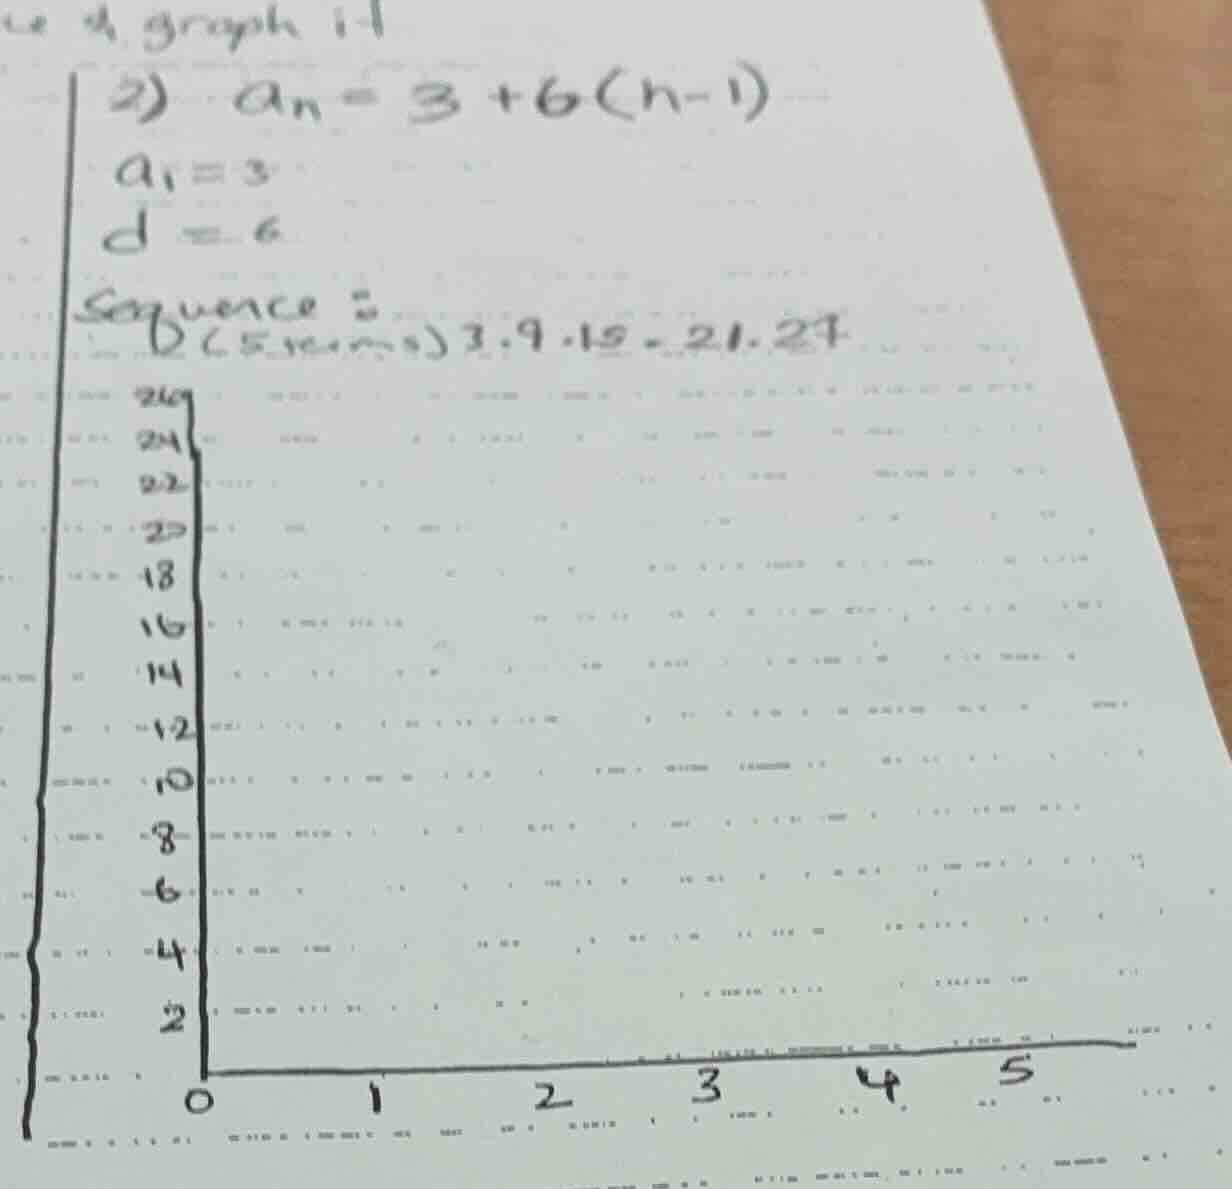 & graph it
2) an = 3 + 6(n-1)
a1 = 3
d = 6
Sequence :
(5 terms) 3.9.15.21.27
26
24
22
20
18
16
14
12
10
8
6
4
2
0 1 2 3 4 5